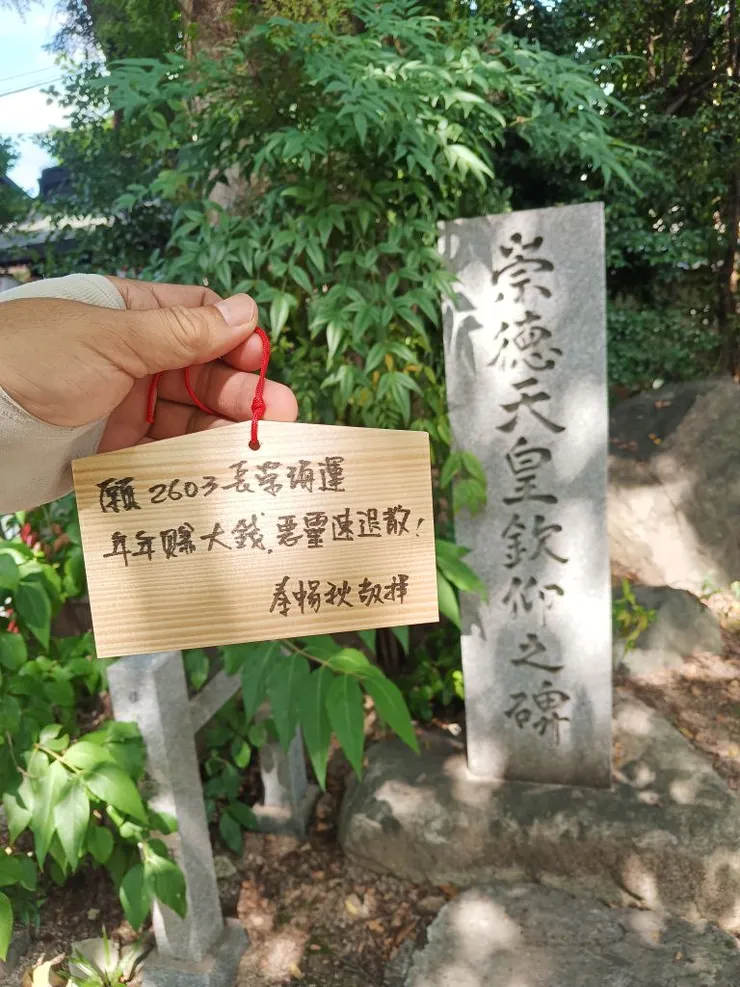 願 2603 長荣海運
年年賺大錢, 惡靈速退散!
秦暢秋敬揮
崇德天皇欽仰之碑